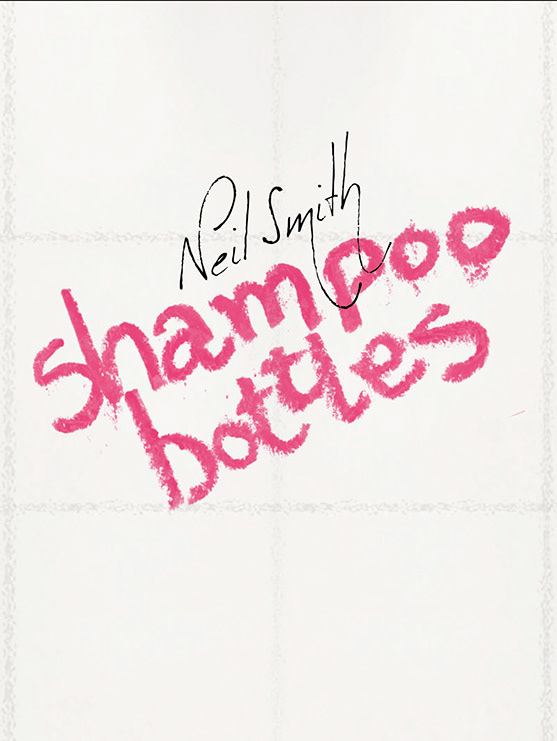 Neil Smith
shampoo
bottles